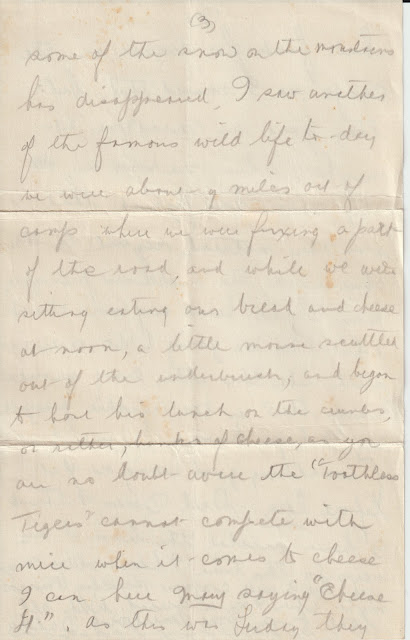 (3)
some of the snow on the mountains
has disappeared, I saw another
of the famous wild life to-day
we were about 9 miles out of
camp where we were fixing a part
of the road, and while we were
sitting eating our bread and cheese
at noon, a little mouse scuttled
out of the underbrush, and began
to have his lunch on the crumbs,
or rather, hunks of cheese, as you
are no doubt aware the "Toothless
Tigers" cannot compete with
mice when it comes to cheese
I can here Mary saying "Cheese
It". As this was Friday they